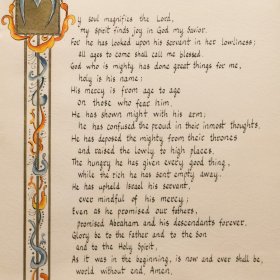 My soul magnifies the Lord,
my spirit finds joy in God my Savior.
For he has looked upon his servant in her lowliness;
all ages to come shall call me blessed.
God who is mighty has done great things for me,
holy is his name;
His mercy is from age to age
on those who fear him.
He has shown might with his arm;
he has confused the proud in their inmost thoughts.
He has deposed the mighty from their thrones
and raised the lowly to high places.
The hungry he has given every good thing,
while the rich he has sent empty away.
He has upheld Israel his servant,
ever mindful of his mercy;
Even as he promised our fathers,
promised Abraham and his descendants forever.
Glory be to the Father and to the Son
and to the Holy Spirit,
As it was in the beginning, is now and ever shall be,
world without end, Amen.